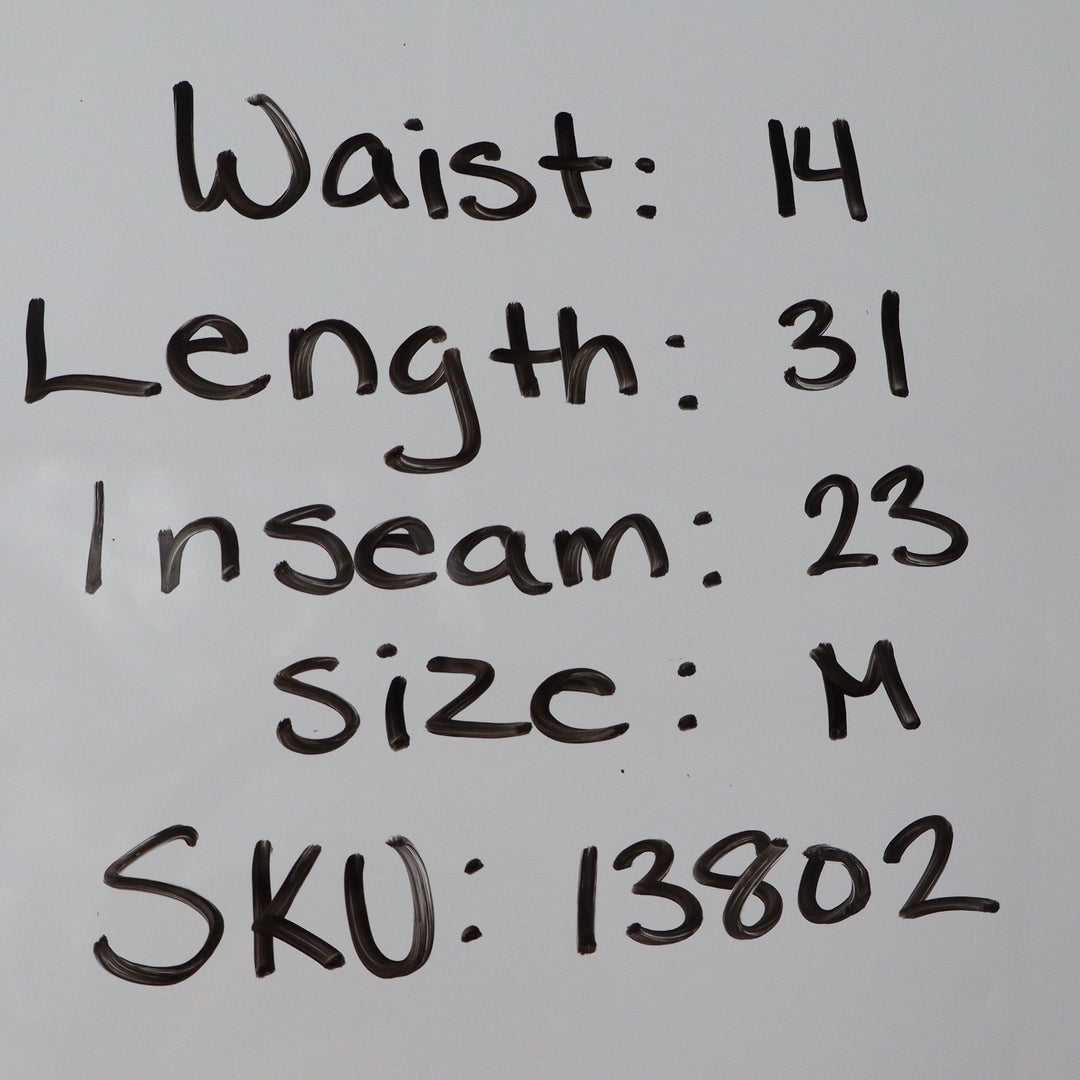 Waist: 14
Length: 31
Inseam: 23
Size: M
SKU: 13802